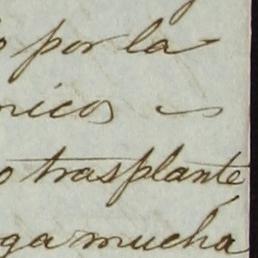 o por la
nicos
o trasplante
ga mucha